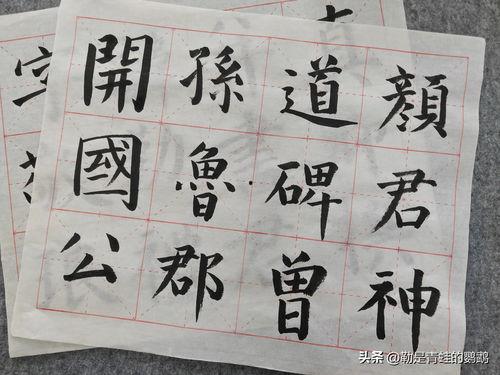 顏君神
道碑曾
孫魯郡
開國公
头条 @勒是青蛙的鹦鹉